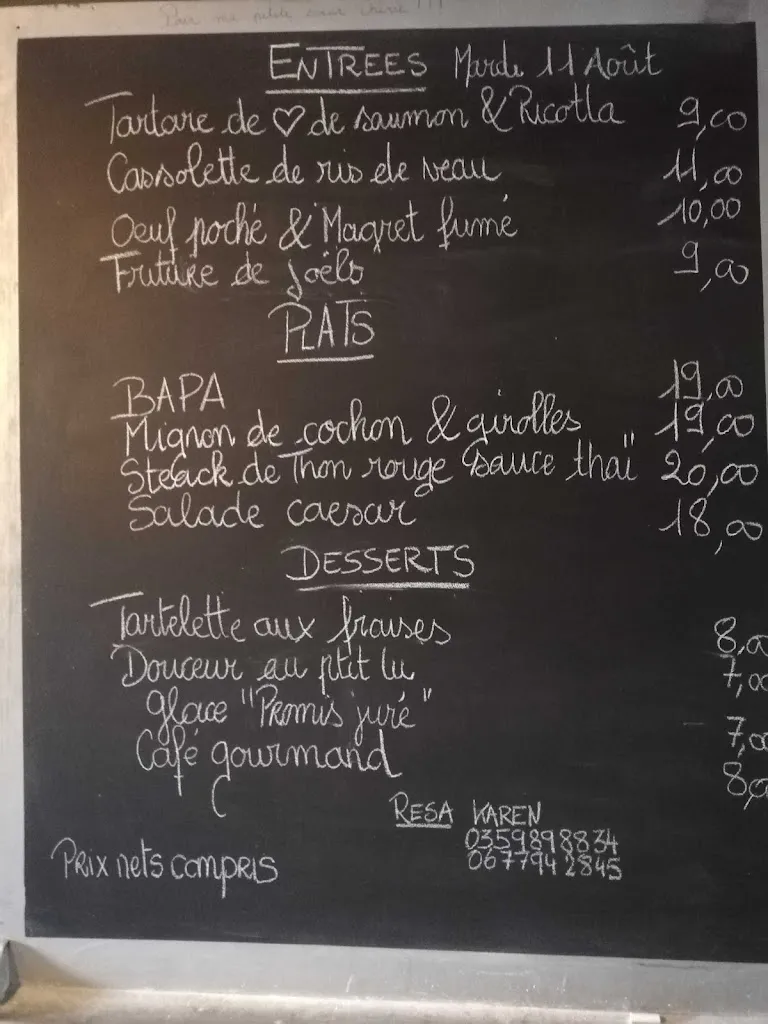 Pour ma petite soeur chérie !!!
ENTREES Mardi 11 Août
Tartare de ♡ de saumon & Ricotta 9,00
Cassolette de ris de veau 11,00
Oeuf poché & Magret fumé 10,00
Friture de joëls 9,00
PLATS
BAPA 19,00
Mignon de cochon & girolles 19,00
Steack de Thon rouge "sauce thaï" 20,00
Salade caesar 18,00
DESSERTS
Tartelette aux fraises 8,00
Douceur au ptit lu 7,00
Glace "Promis juré" 7,00
Café gourmand 8,0
RESA KAREN
0359898834
0677942845
PRIX nets compris